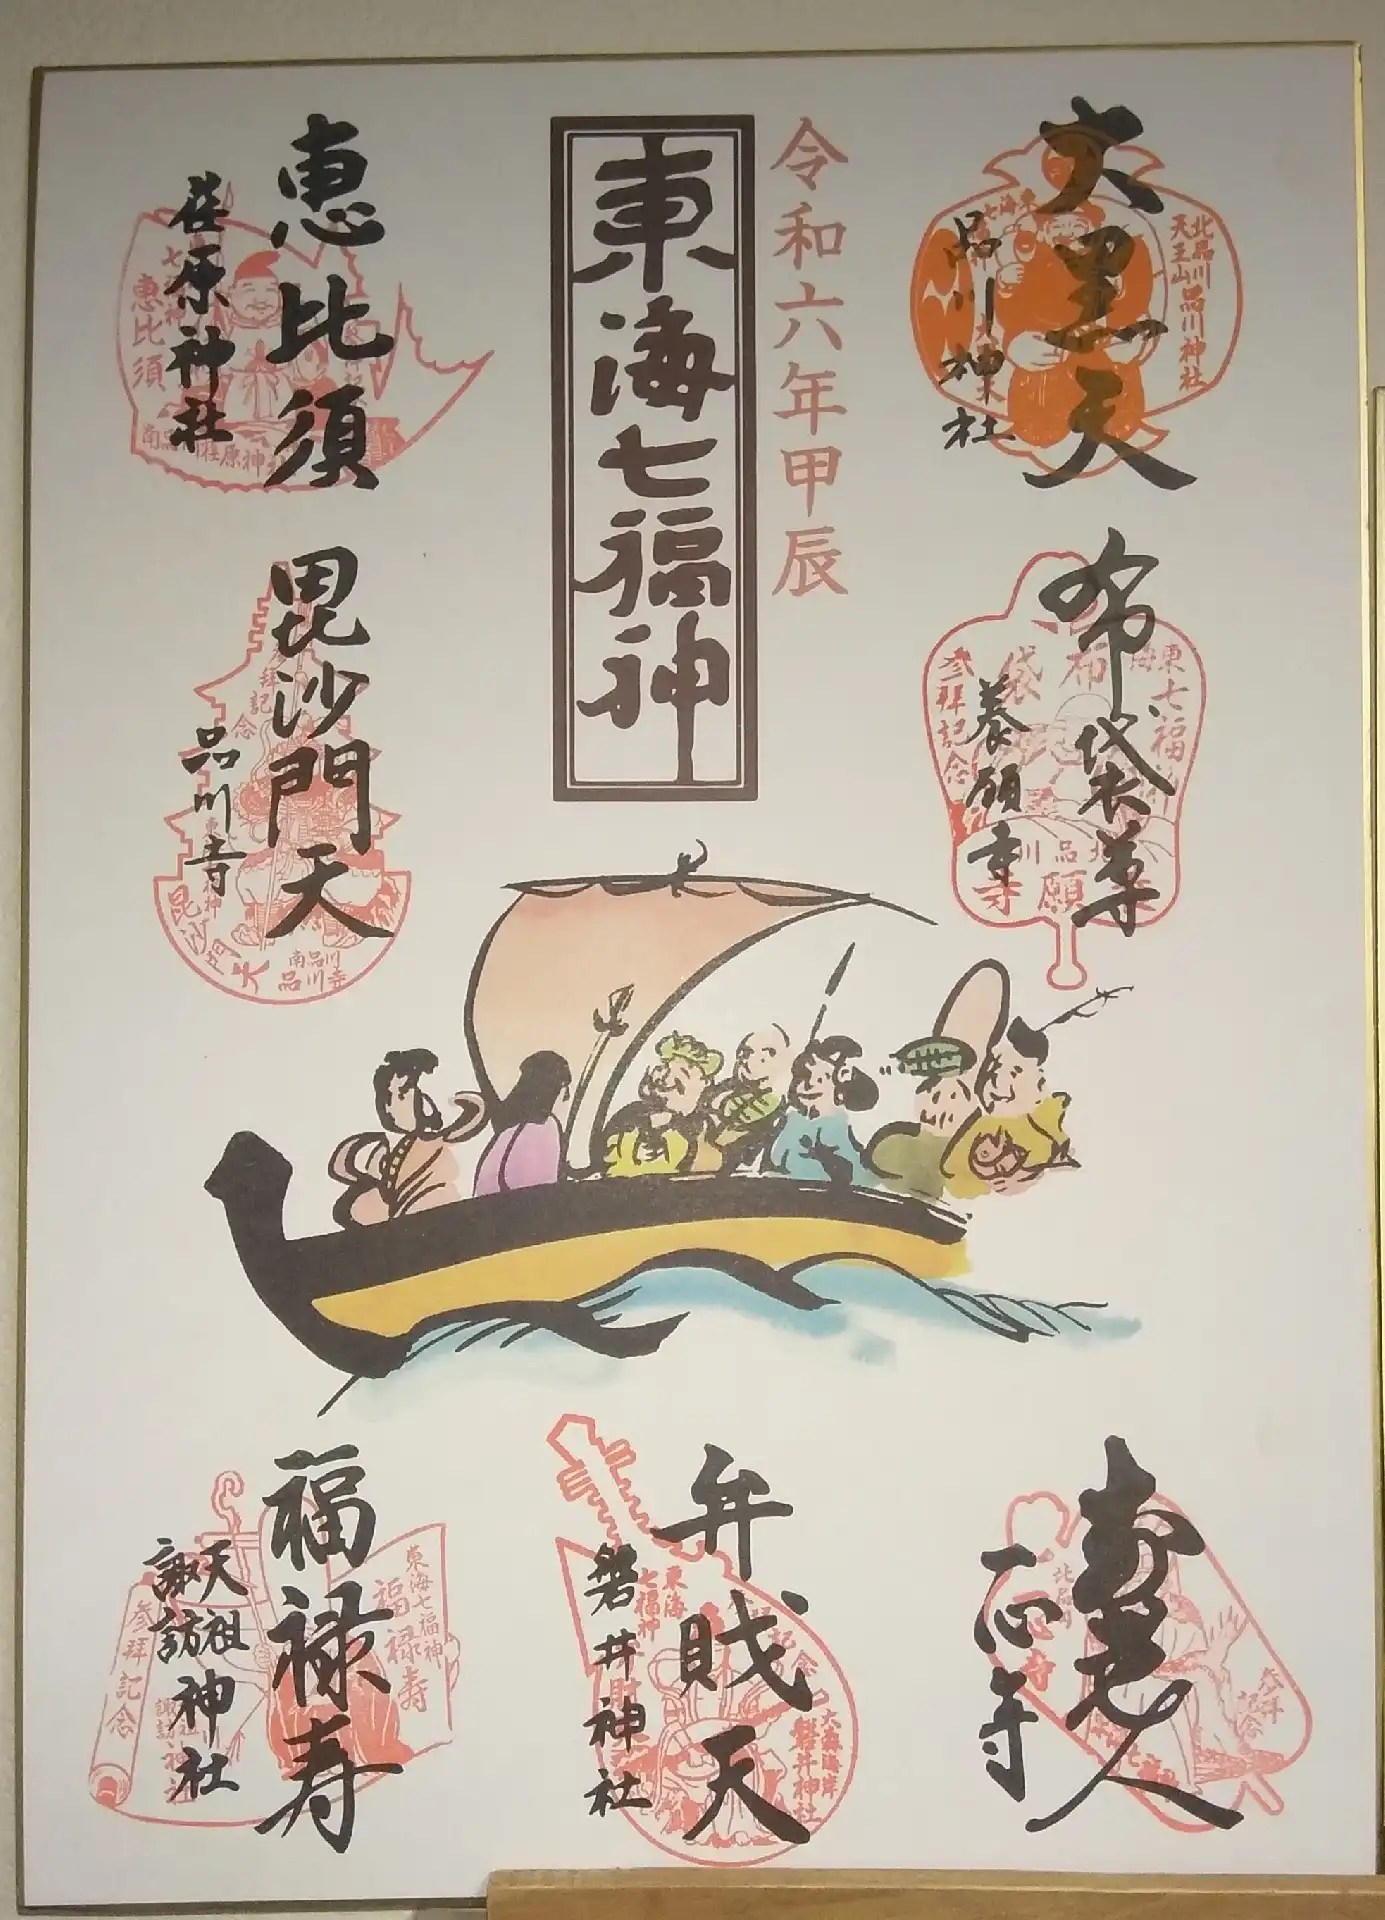 令和六年甲辰
東海七福神
大黒天
品川神社
北品川
天王山品川神社
布袋尊
養願寺
東海七福神
布袋
参拝記念
北品川
養願寺
恵比須
荏原神社
恵比須
毘沙門天
品川寺
拝記念
毘沙門天
南品川
品川寺
寿老人
一心寺
北品川
参拝
記念
弁財天
磐井神社
東海
七福神
大森海岸
磐井神社
福禄寿
天祖
諏訪
神社
東海七福神
福禄寿
参拝記念